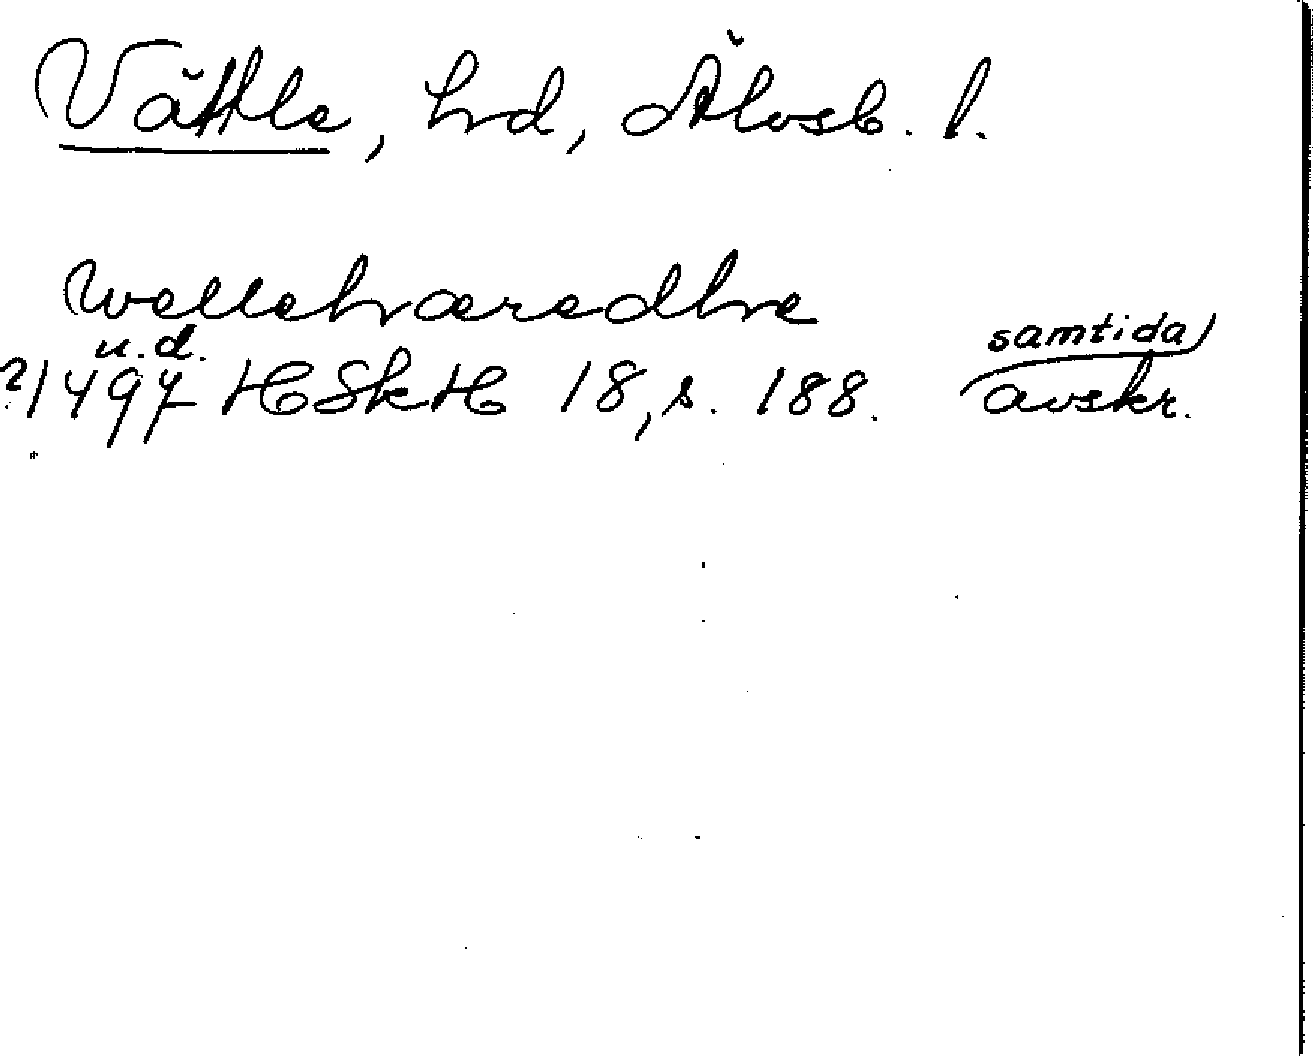 Vättle, hd, Älvsb. l.
wellehæredhe
u.d. samtida
?/1497 HSkH 18, s. 188. avskr.